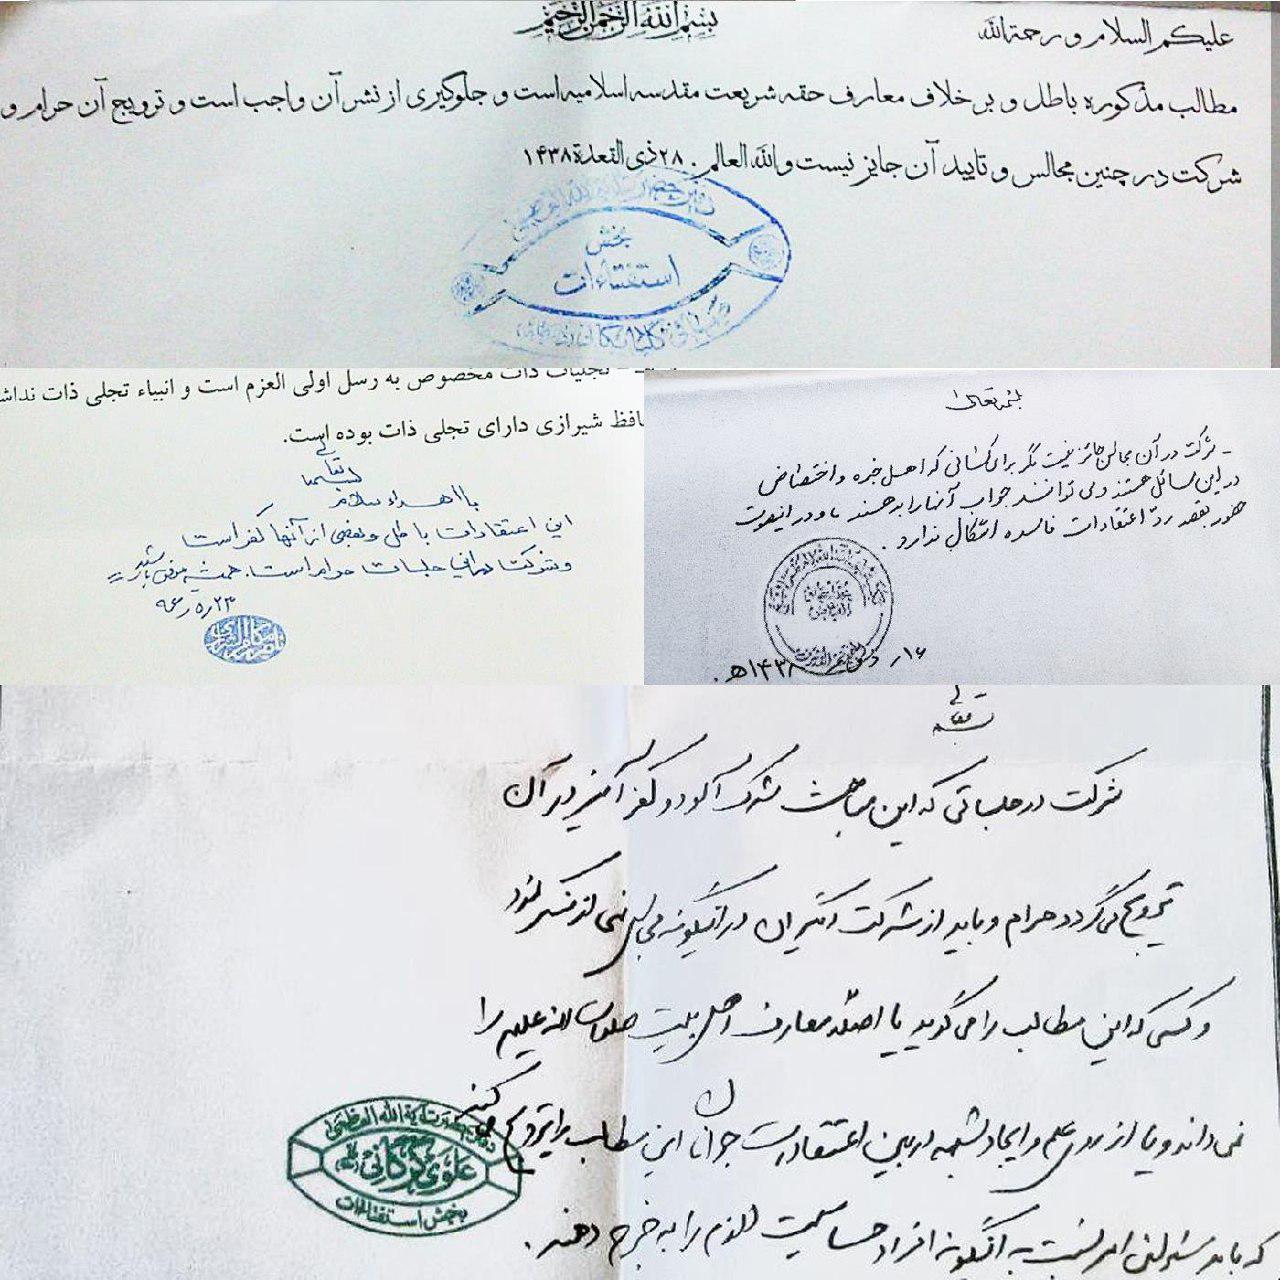 بسم الله الرحمن الرحیم
علیکم السلام و رحمة الله
مطالب مذکوره باطل و بر خلاف معارف حقه شریعت مقدسه اسلامیه است و جلوگیری از نشر آن واجب است و ترویج آن حرام و
شرکت در چنین مجالس و تایید آن جایز نیست و الله العالم. ۲۸ ذی القعدة ۱۴۳۸
دفتر حضرت آیة الله العظمی
بخش
استفتاءات
صافی گلپایگانی
تجلیات ذات مخصوص به رسل اولی العزم است و انبیاء تجلی ذات نداش
افظ شیرازی دارای تجلی ذات بوده است.
بسمه تعالی
با اهداء سلام
این اعتقادات باطل و بعضی از آنها کفر است
و شرکت در این جلسات حرام است. همیشه موفق باشید
بسمه تعالی
- شرکت در آن مجالس جائز نیست مگر برای کسانی که اهل خبره و اختصاص
در این مسائل هستند و می توانند جواب آنها را بدهند و در اینصورت
حضور بقصد رد اعتقادات فاسده اشکال ندارد.
۱۴۳۸ه.
بسمه تعالی
شرکت در جلساتی که این مباحث شرک آلود و کفر آمیز در آن
ترویج می گردد حرام و باید از شرکت دیگران در اینگونه مجالس نهی از منکر شود
و کسی که این مطالب را می گوید یا اصلا معارف اهل بیت صلوات الله علیهم را
نمی داند و یا از روی علم و ایجاد شبهه در بین اعتقادات جوانان این مطالب را ترویج می کند
که باید مسئولین امر نسبت به اینگونه افراد حساسیت لازم را به خرج دهند.
دفتر حضرت آیة الله العظمی
علوی گرگانی
بخش استفتائات